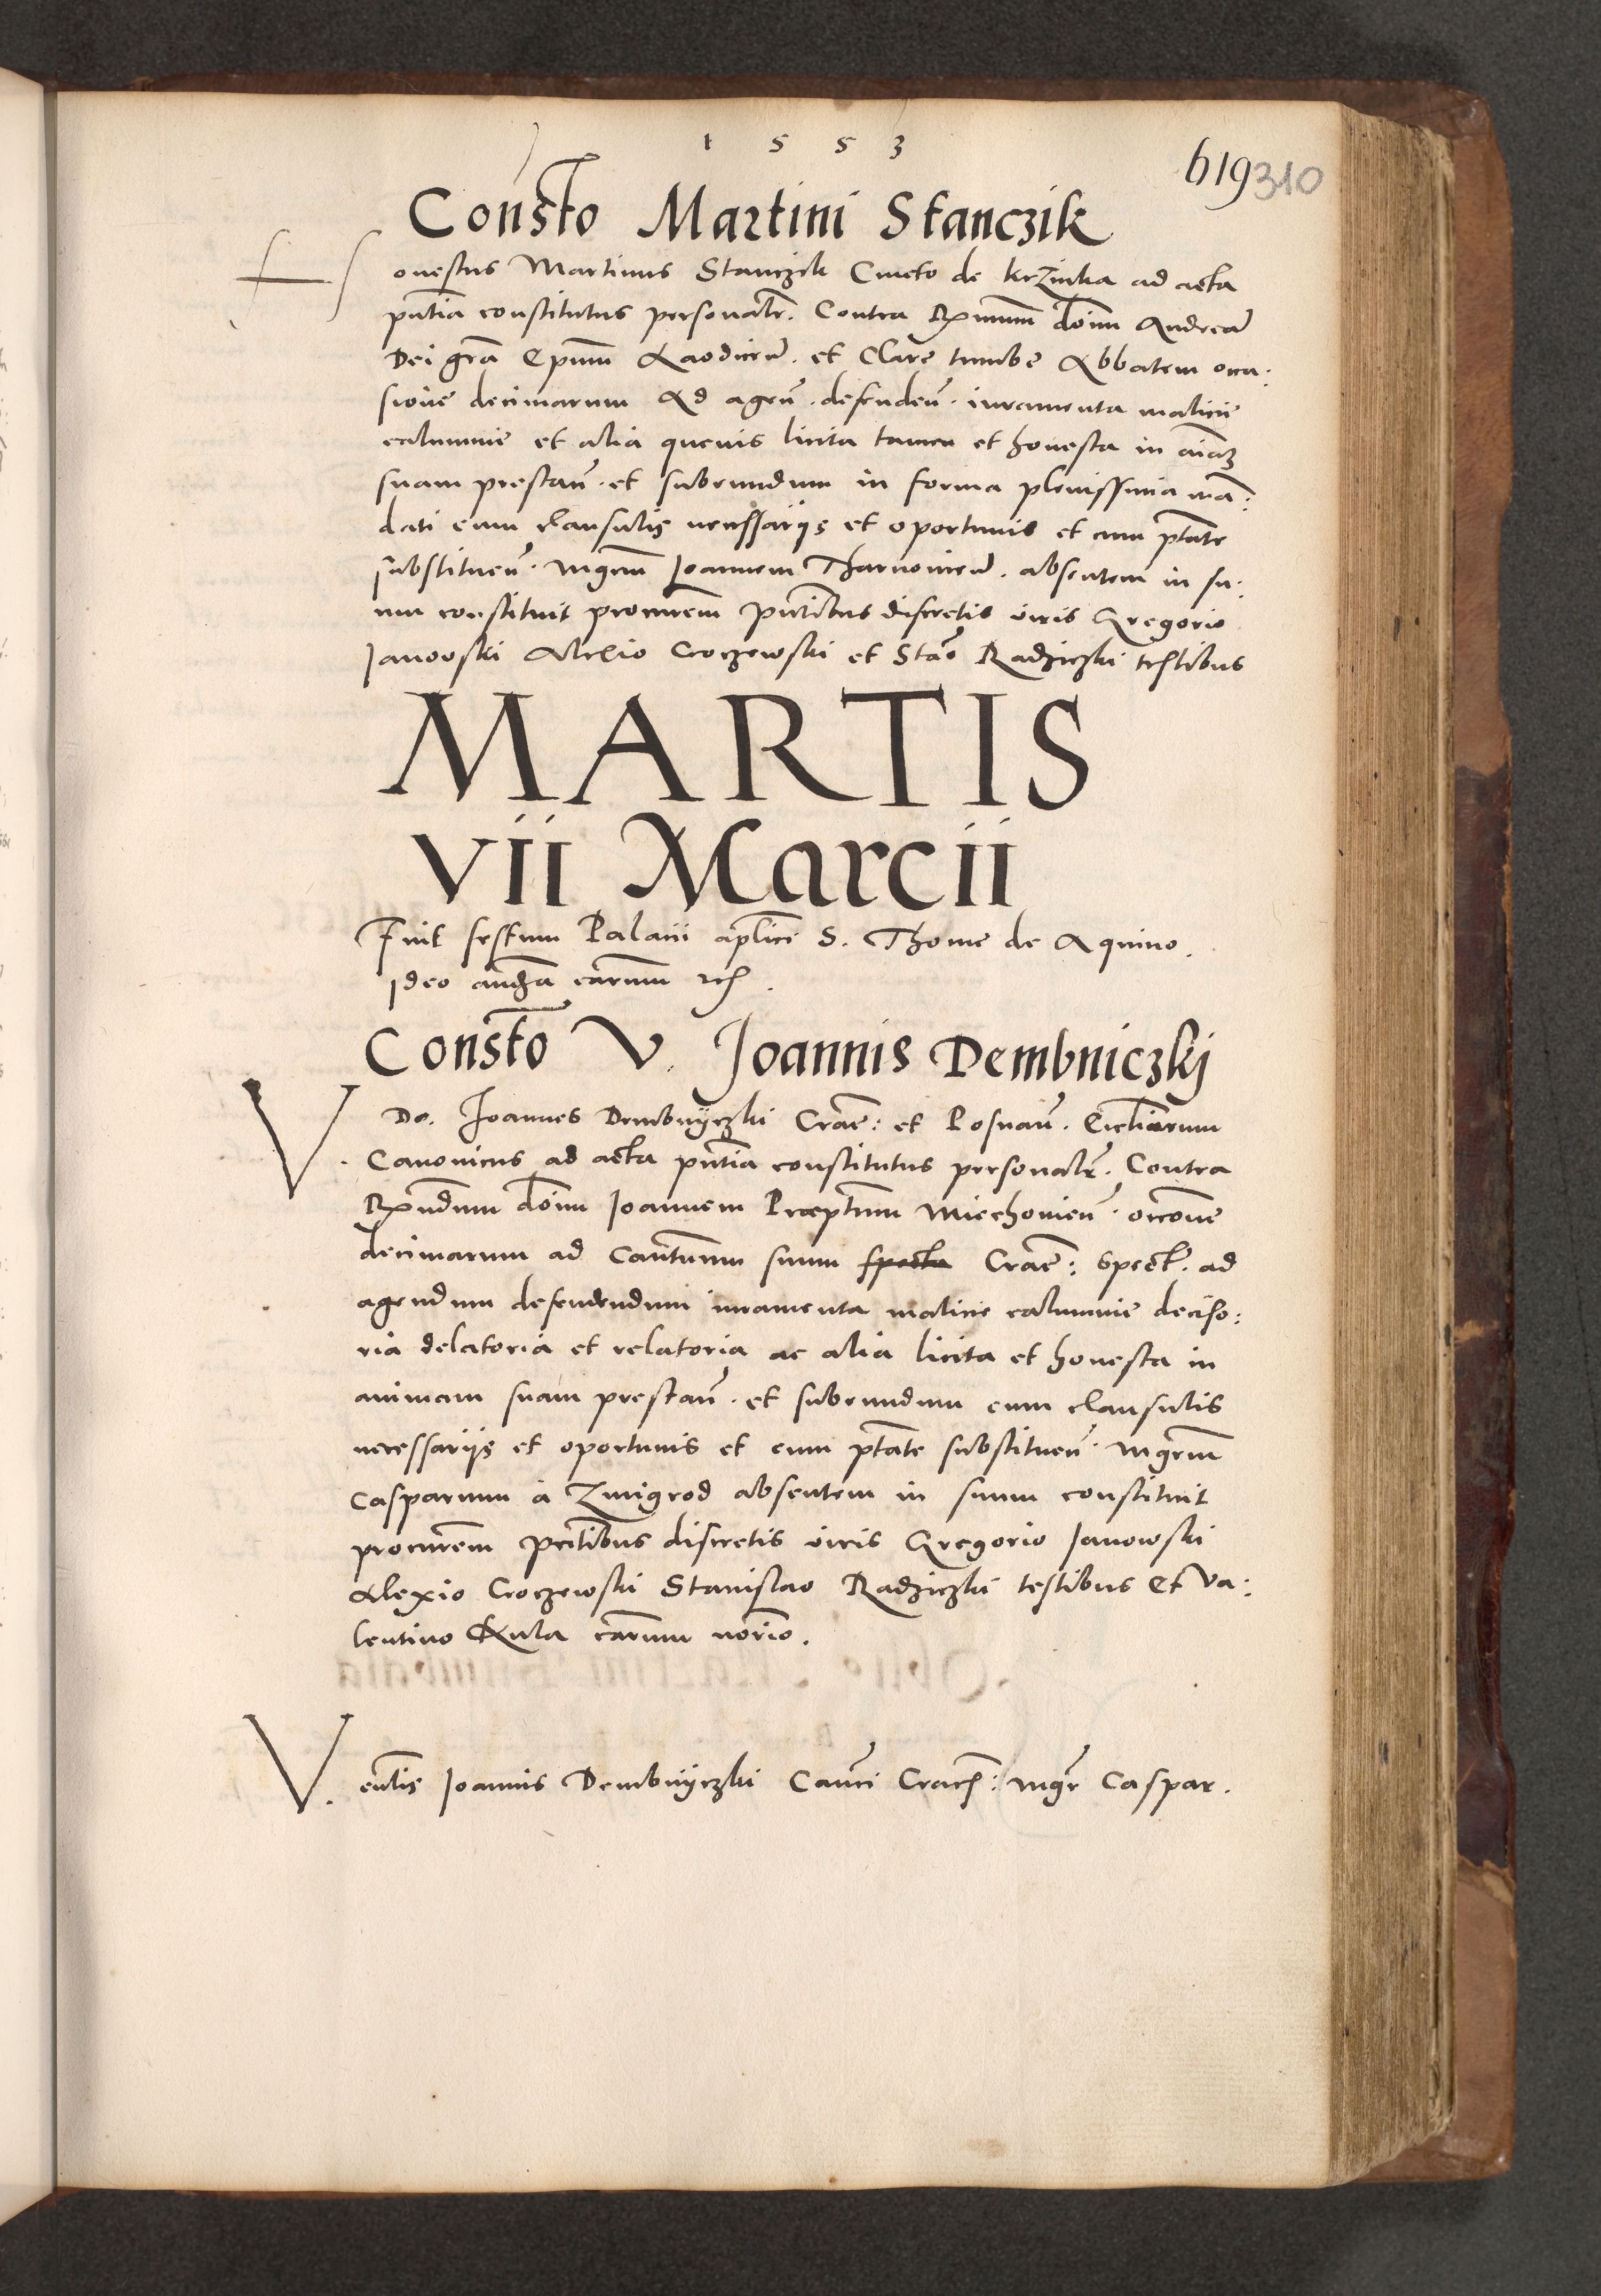 1 5 5 3
619 310
Consto Martini Stanczik
Honestus Martinus Stanczik Cmeto de krzinka ad acta
pntia constitutus personalr. Contra Rximum dom Andream
Dei gra Epum Laodicen. et Clare tumbe Abbatem occa:
sione decimarum Ad agen. defenden. iuramenta malicie
calumnie et alia quevis licita tamen et honesta in aiam
suam prestan. et subeundum in forma plenissima man:
dati cum clausulis necessariis et oportunis et cum ptate
substituen. Mgrm Ioannem Tharnovien. absentem in su:
um constituit procurem pntibus discretis viris Gregorio
Ianovski Alexio Croczewski et Stao Radziczki testibus
MARTIS
vii Marcii
Fuit festum Palacii aplici S. Thome de Aquino.
Ideo audia carum rch.
Consto V. Joannis Dembniczkj
V. Do. Joannes Dembnyczki Crac: et Posnan. Ecclarum
Canonicus ad acta pntia constitutus personalr. Contra
Rxndum dom Ioannem Præptum Miechovien. occone
decimarum ad Cantum suum specta Crac: spect. ad
agendum defendendum iuramenta malicie calumnie deciso:
ria delatoria et relatoria ac alia licita et honesta in
animam suam prestan. et subeundum cum clausulis
necessariis et oportunis et cum ptate substituen. Mgrm
Casparum a Zmigrod absentem in suum constituit
procurem pntibus discretis viris Gregorio Ianowski
Alexio Croczewski Stanislao Radziczki testibus Et Va:
lentino Kula carum norio.
V. enlis Joannis Dembnyczki Canci Crach: Mgr Caspar.